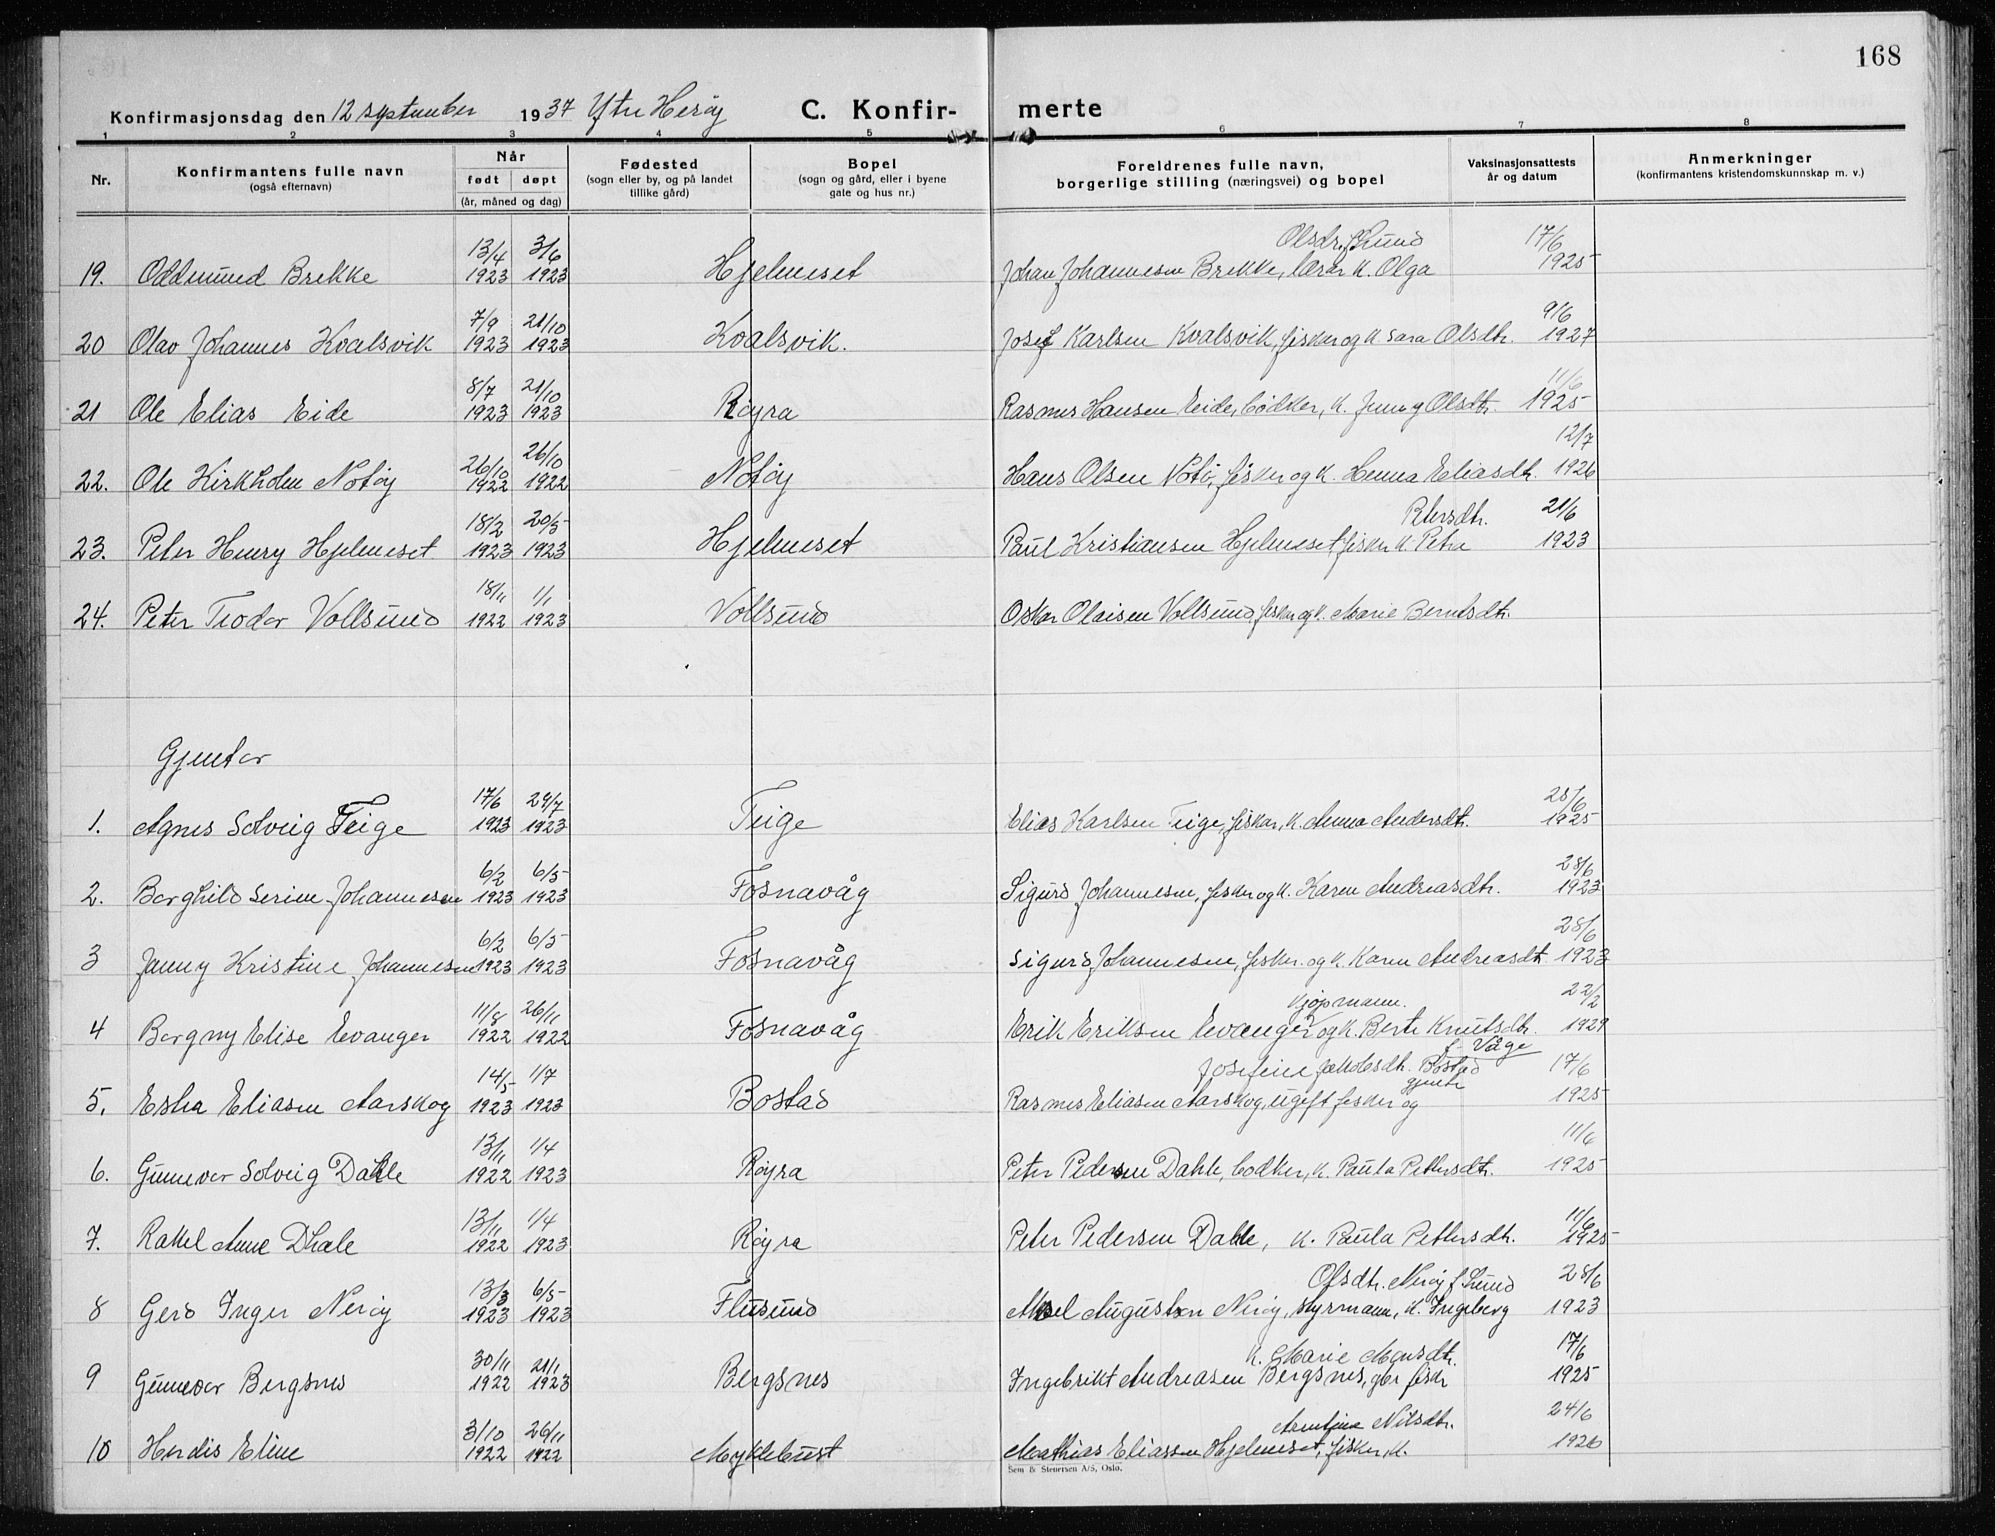 168
Konfirmasjonsdag den 12 september 1937 Ytre Herøy C. Konfir- merte
1 2 3 4 5 6 7 8
Nr. Konfirmantens fulle navn (også efternavn) Når født døpt (år, måned og dag) Fødested (sogn eller by, og på landet tillike gård) Bopel (sogn og gård, eller i byene gate og hus nr.) Foreldrenes fulle navn, borgerlige stilling (næringsvei) og bopel Vaksinasjonsattests år og datum Anmerkninger (konfirmantens kristendomskunnskap m. v.)
13/4 3/6 Olsdr. f. Lund 17/6
19. Oddmund Brekke 1923 1923 Hjelmeset Johan Johannesen Brekke, lærar k. Olga 1925
7/9 21/10 9/6
20 Olav Johannes Kvalsvik 1923 1923 Kvalsvik. Josef Karlsen Kvalsvik, fisker og k. Sara Olsdtr. 1927
8/7 21/10 11/6
21 Ole Elias Eide 1923 1923 Røyra Rasmus Hansen Eide, bødker, k. Jenny Olsdtr. 1925
26/10 26/10 12/7
22. Ole Kirkholm Notøy 1922 1922 Notøy Hans Olsen Notø, fisker og k. Henna Eliasdtr. 1926
18/2 20/5 Petersdtr. 21/6
23. Peter Henry Hjelmeset 1923 1923 Hjelmeset Paul Kristiansen Hjelmeset, fisker k. Petra 1923
18/11 1/1
24. Peter Teodor Vollsund 1922 1923 Vollsund Oskar Olaisen Vollsund, fisker og k. Marie Berntsdtr.
Gjentor
17/6 29/7 28/6
1. Agnes Solveig Teige 1923 1923 Teige Elias Karlsen Teige, fisker, k. Anna Andersdtr. 1925
6/2 6/5 28/6
2. Borghild Serine Johannesen 1923 1923 Fosnavåg Sigurd Johannesen, fisker og k. Karen Andreasdtr. 1923
6/2 6/5 28/6
3 Jenny Kristine Johannesen 1923 1923 Fosnavåg Sigurd Johannesen, fisker. og k. Karen Andreasdtr. 1923
11/8 26/11 kjøpmann. 22/2
4 Borgny Elise Evanger 1922 1922 Fosnavåg Erik Eriksen Evanger og k. Berte Knutsdtr. 1929
f. Våge
14/5 1/7 Josefine Jakobsdtr. Bøstad 17/6
gjente
5. Esther Eliasen Aarskog 1923 1923 Bøstad Rasmus Eliasen Aarskog, ugift fisker og 1925
13/11 1/4 11/6
6. Gunnvor Solveig Dahle 1922 1923 Røyra Peter Pedersen Dahle, bødker, k. Paula Pettersdtr. 1925
13/11 1/4 11/6
7. Rakel Anne Dhale 1922 1923 Røyra Peter Pedersen Dahle, k. Paula Pettersdtr. 1925
13/3 6/5 Olsdtr. Nerøy f. Lund 28/6
8 Gerd Inger Nerøy 1923 1923 Flusund Aksel Augustsen Nerøy, styrmann, k. Ingeborg 1923
30/11 21/1 k. Marie Monsdtr. 17/6
9 Gunnvor Bergsnes 1922 1923 Bergsnes Ingebrikt Andreasen Bergsnes, gbr fisker 1925
3/10 26/11 Arntine Nilsdtr. 24/6
10 Herdis Eline 1922 1922 Myklebust Mathias Eliassen Hjelmeset, fisker, k. 1926
Sem & Stenersen A/S, Oslo.